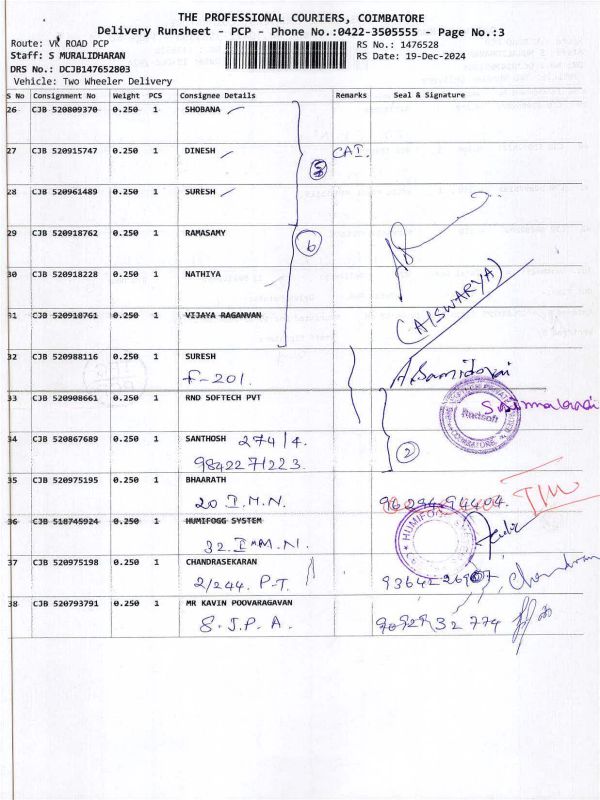 THE PROFESSIONAL COURIERS, COIMBATORE
Delivery Runsheet - PCP - Phone No.:0422-3505555 - Page No.:3
Route: VK ROAD PCP
RS No.: 1476528
Staff: S MURALIDHARAN
RS Date: 19-Dec-2024
DRS No.: DCJB147652803
Vehicle: Two Wheeler Delivery
S No Consignment No Weight PCS Consignee Details Remarks Seal & Signature
26 CJB 520809370 0.250 1 SHOBANA
27 CJB 520915747 0.250 1 DINESH CAI.
28 CJB 520961489 0.250 1 SURESH
29 CJB 520918762 0.250 1 RAMASAMY
6
30 CJB 520918228 0.250 1 NATHIYA
(AISWARYA)
31 CJB 520918761 0.250 1 VIJAYA RAGANVAN
32 CJB 520988116 0.250 1 SURESH
F-201.
33 CJB 520908661 0.250 1 RND SOFTECH PVT
Rndsoft
34 CJB 520867689 0.250 1 SANTHOSH 274/4.
2
9842271223.
35 CJB 520975195 0.250 1 BHAARATH
20 I.M.N. 96294 94404.
36 CJB 518745924 0.250 1 HUMIFOGG SYSTEM
32. I M.N. HUMIFOGG
37 CJB 520975198 0.250 1 CHANDRASEKARAN
2/244. P.T. Chandran
38 CJB 520793791 0.250 1 MR KAVIN POOVARAGAVAN
8. J.P.A. 90929 32 774